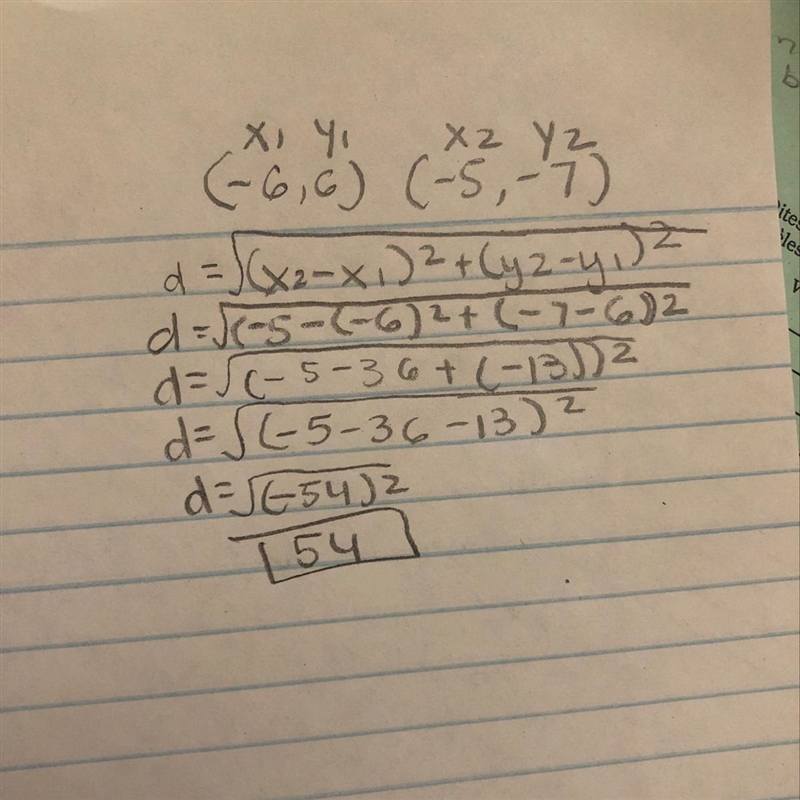 x₁ y₁ x₂ y₂
(-6,6) (-5,-7)
d=√(x₂-x₁)²+(y₂-y₁)²
d=√(-5-(-6)²+(-7-6)²
d=√(-5-36+(-13))²
d=√(-5-36-13)²
d=√(-54)²
54